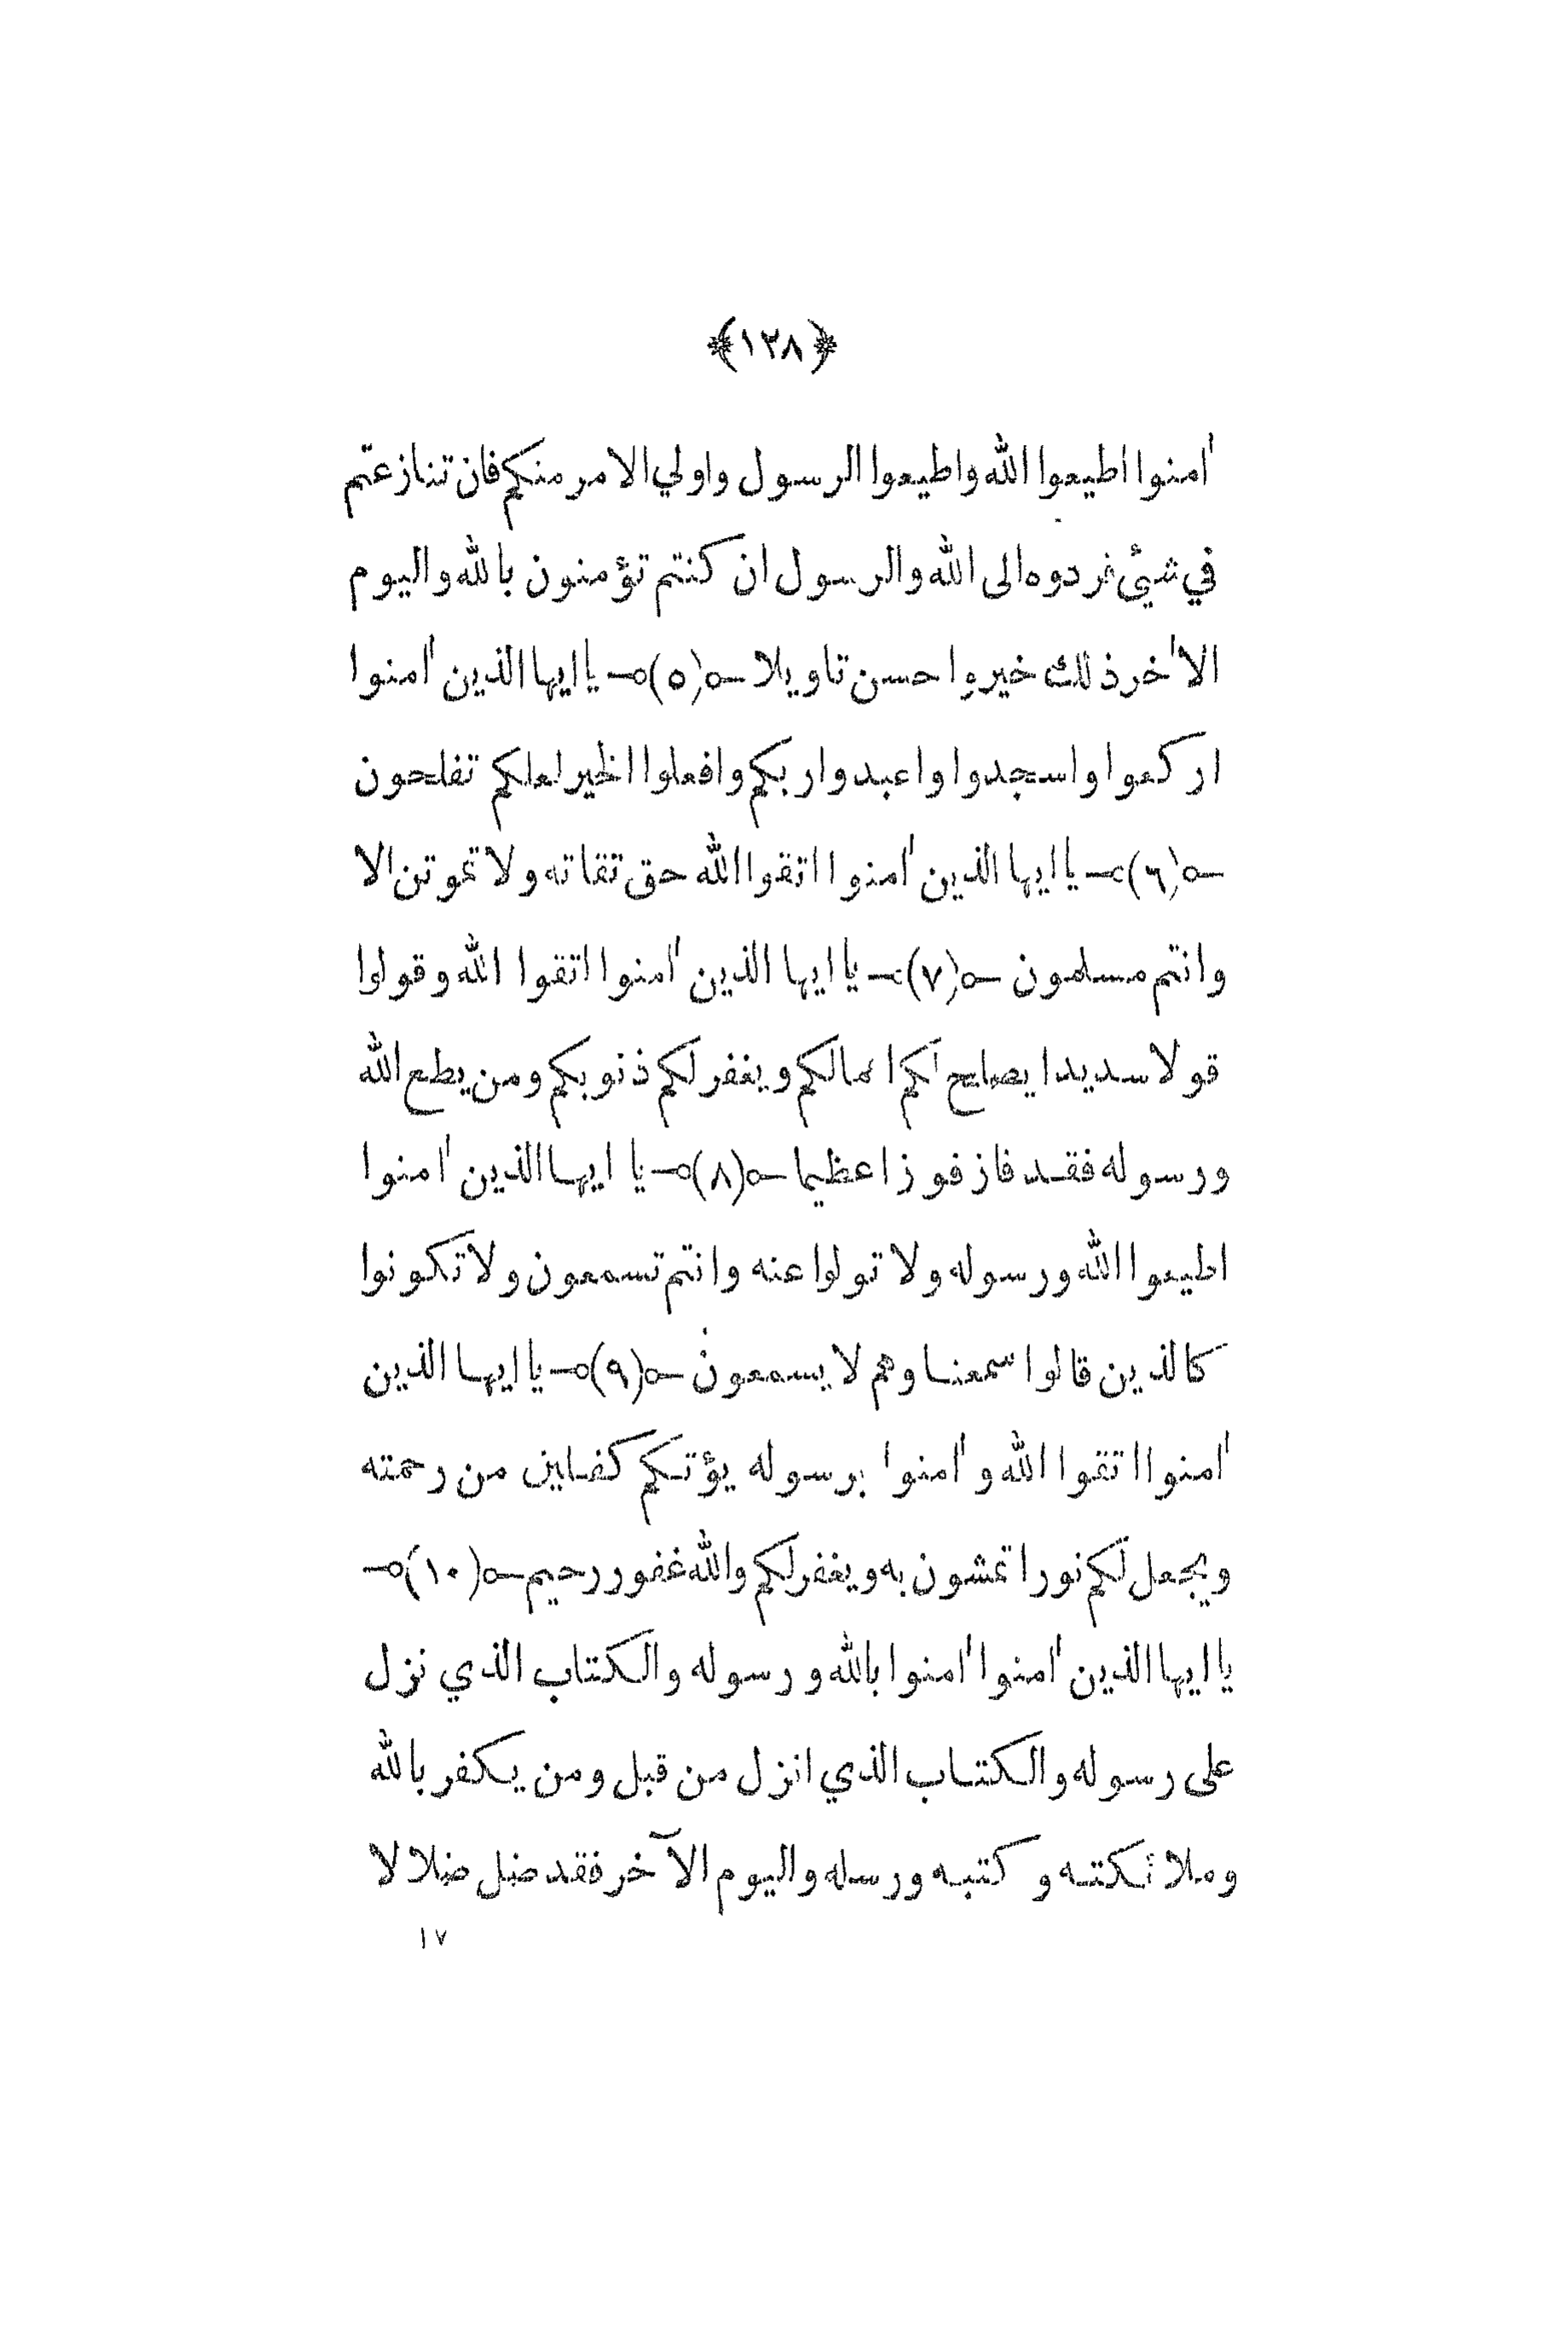 ﴿١٢٨﴾
اٰمنوا اطيعوا الله واطيعوا الرسول واولي الامر منكم فان تنازعتم
في شيئ فردوه الى الله والرسول ان كنتم تؤمنون بالله واليوم
الاٰخر ذلك خير واحسن تاويلا -o(٥)o- يا ايها الذين اٰمنوا
اركعوا واسجدوا واعبدوا ربكم وافعلوا الخير لعلكم تفلحون
-o(٦)o- يا ايها الذين اٰمنوا اتقوا الله حق تقاته ولا تموتن الا
وانتم مسلمون -o(٧)o- يا ايها الذين اٰمنوا اتقوا الله وقولوا
قولا سديدا يصلح لكم اعمالكم ويغفر لكم ذنوبكم ومن يطع الله
ورسوله فقد فاز فوزا عظيما -o(٨)o- يا ايها الذين اٰمنوا
اطيعوا الله ورسوله ولا تولوا عنه وانتم تسمعون ولا تكونوا
كالذين قالوا سمعنا وهم لا يسمعون -o(٩)o- يا ايها الذين
اٰمنوا اتقوا الله واٰمنوا برسوله يؤتكم كفلين من رحمته
ويجعل لكم نورا تمشون به ويغفر لكم والله غفور رحيم -o(١٠)o-
يا ايها الذين اٰمنوا اٰمنوا بالله ورسوله والكتاب الذي نزل
على رسوله والكتاب الذي انزل من قبل ومن يكفر بالله
وملائكته وكتبه ورسله واليوم الآخر فقد ضل ضلالا
١٧